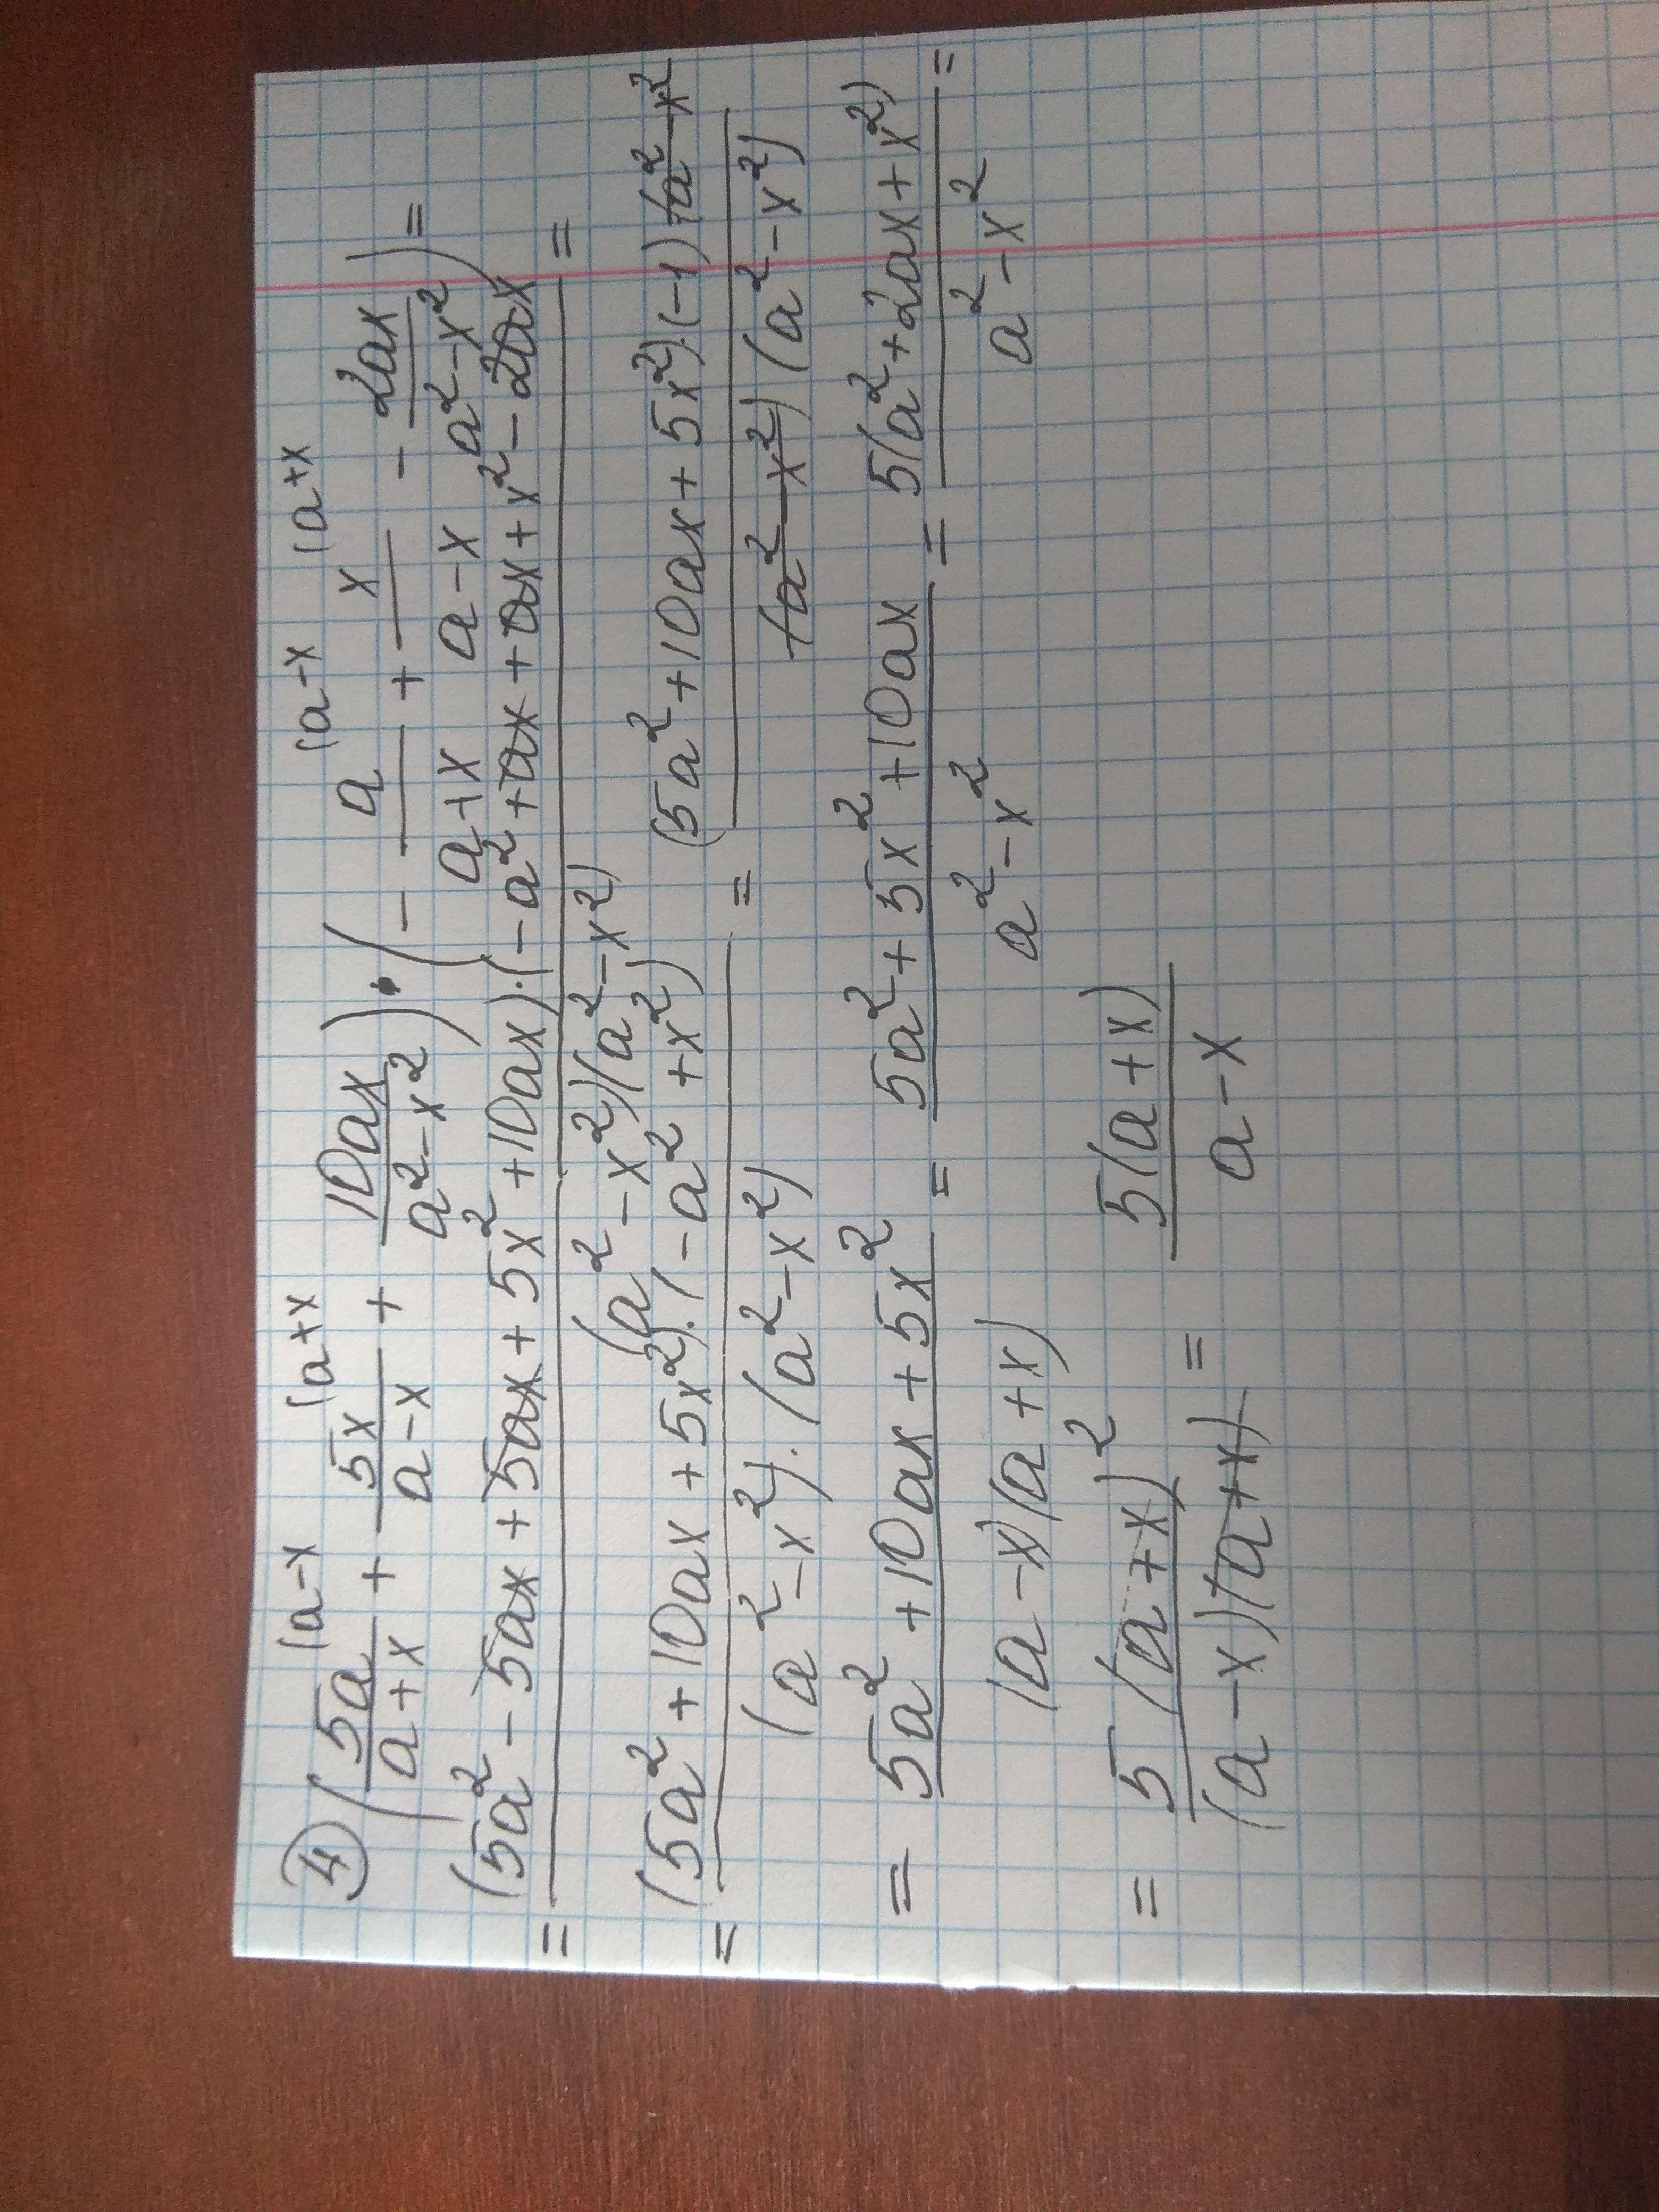 ④ (5a/(a+x) (a-x + 5x/(a-x) (a+x + 10ax/(a²-x²)) · (- a/(a+x) (a-x + x/(a-x) (a+x - 2ax/(a²-x²)) =
= (5a² - 5ax + 5ax + 5x² + 10ax) · (-a² + ax + ax + x² - 2ax) / (a² - x²)(a² - x²) =
= (5a² + 10ax + 5x²) · (-a² + x²) / (a² - x²) · (a² - x²) = (5a² + 10ax + 5x²) · (-1) (a² - x² / (a² - x²) (a² - x²)
= 5a² + 10ax + 5x² / (a-x)(a+x) = 5a² + 5x² + 10ax / a² - x² = 5(a² + 2ax + x²) / a² - x² =
= 5(a+x)² / (a-x)(a+x) = 5(a+x) / a-x